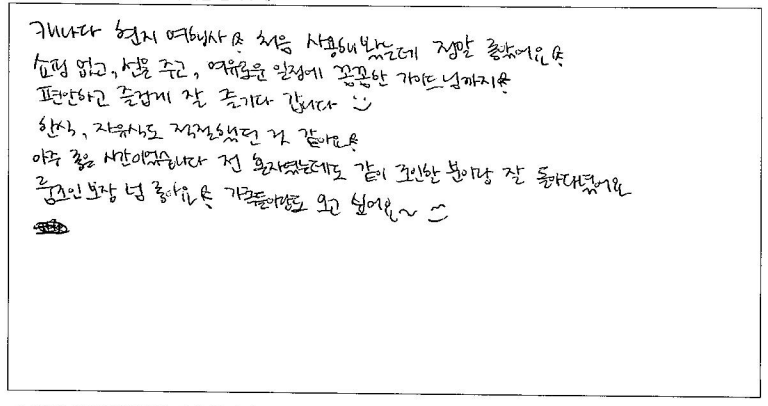 캐나다 현지 여행사☆ 처음 사용해 봤는데 정말 좋았어요☆
쇼핑 없고, 선물 주고, 여유로운 일정에 꼼꼼한 가이드님까지☆
편안하고 즐겁게 잘 즐기다 갑니다 :)
한식, 자유식도 적절했던 것 같아요☆
아주 좋은 시간이었습니다 전 혼자였는데도 같이 조인한 분이랑 잘 돌아다녔어요
룸조인 보장 넘 좋아요☆ 가족들이랑도 오고 싶어요~ :)